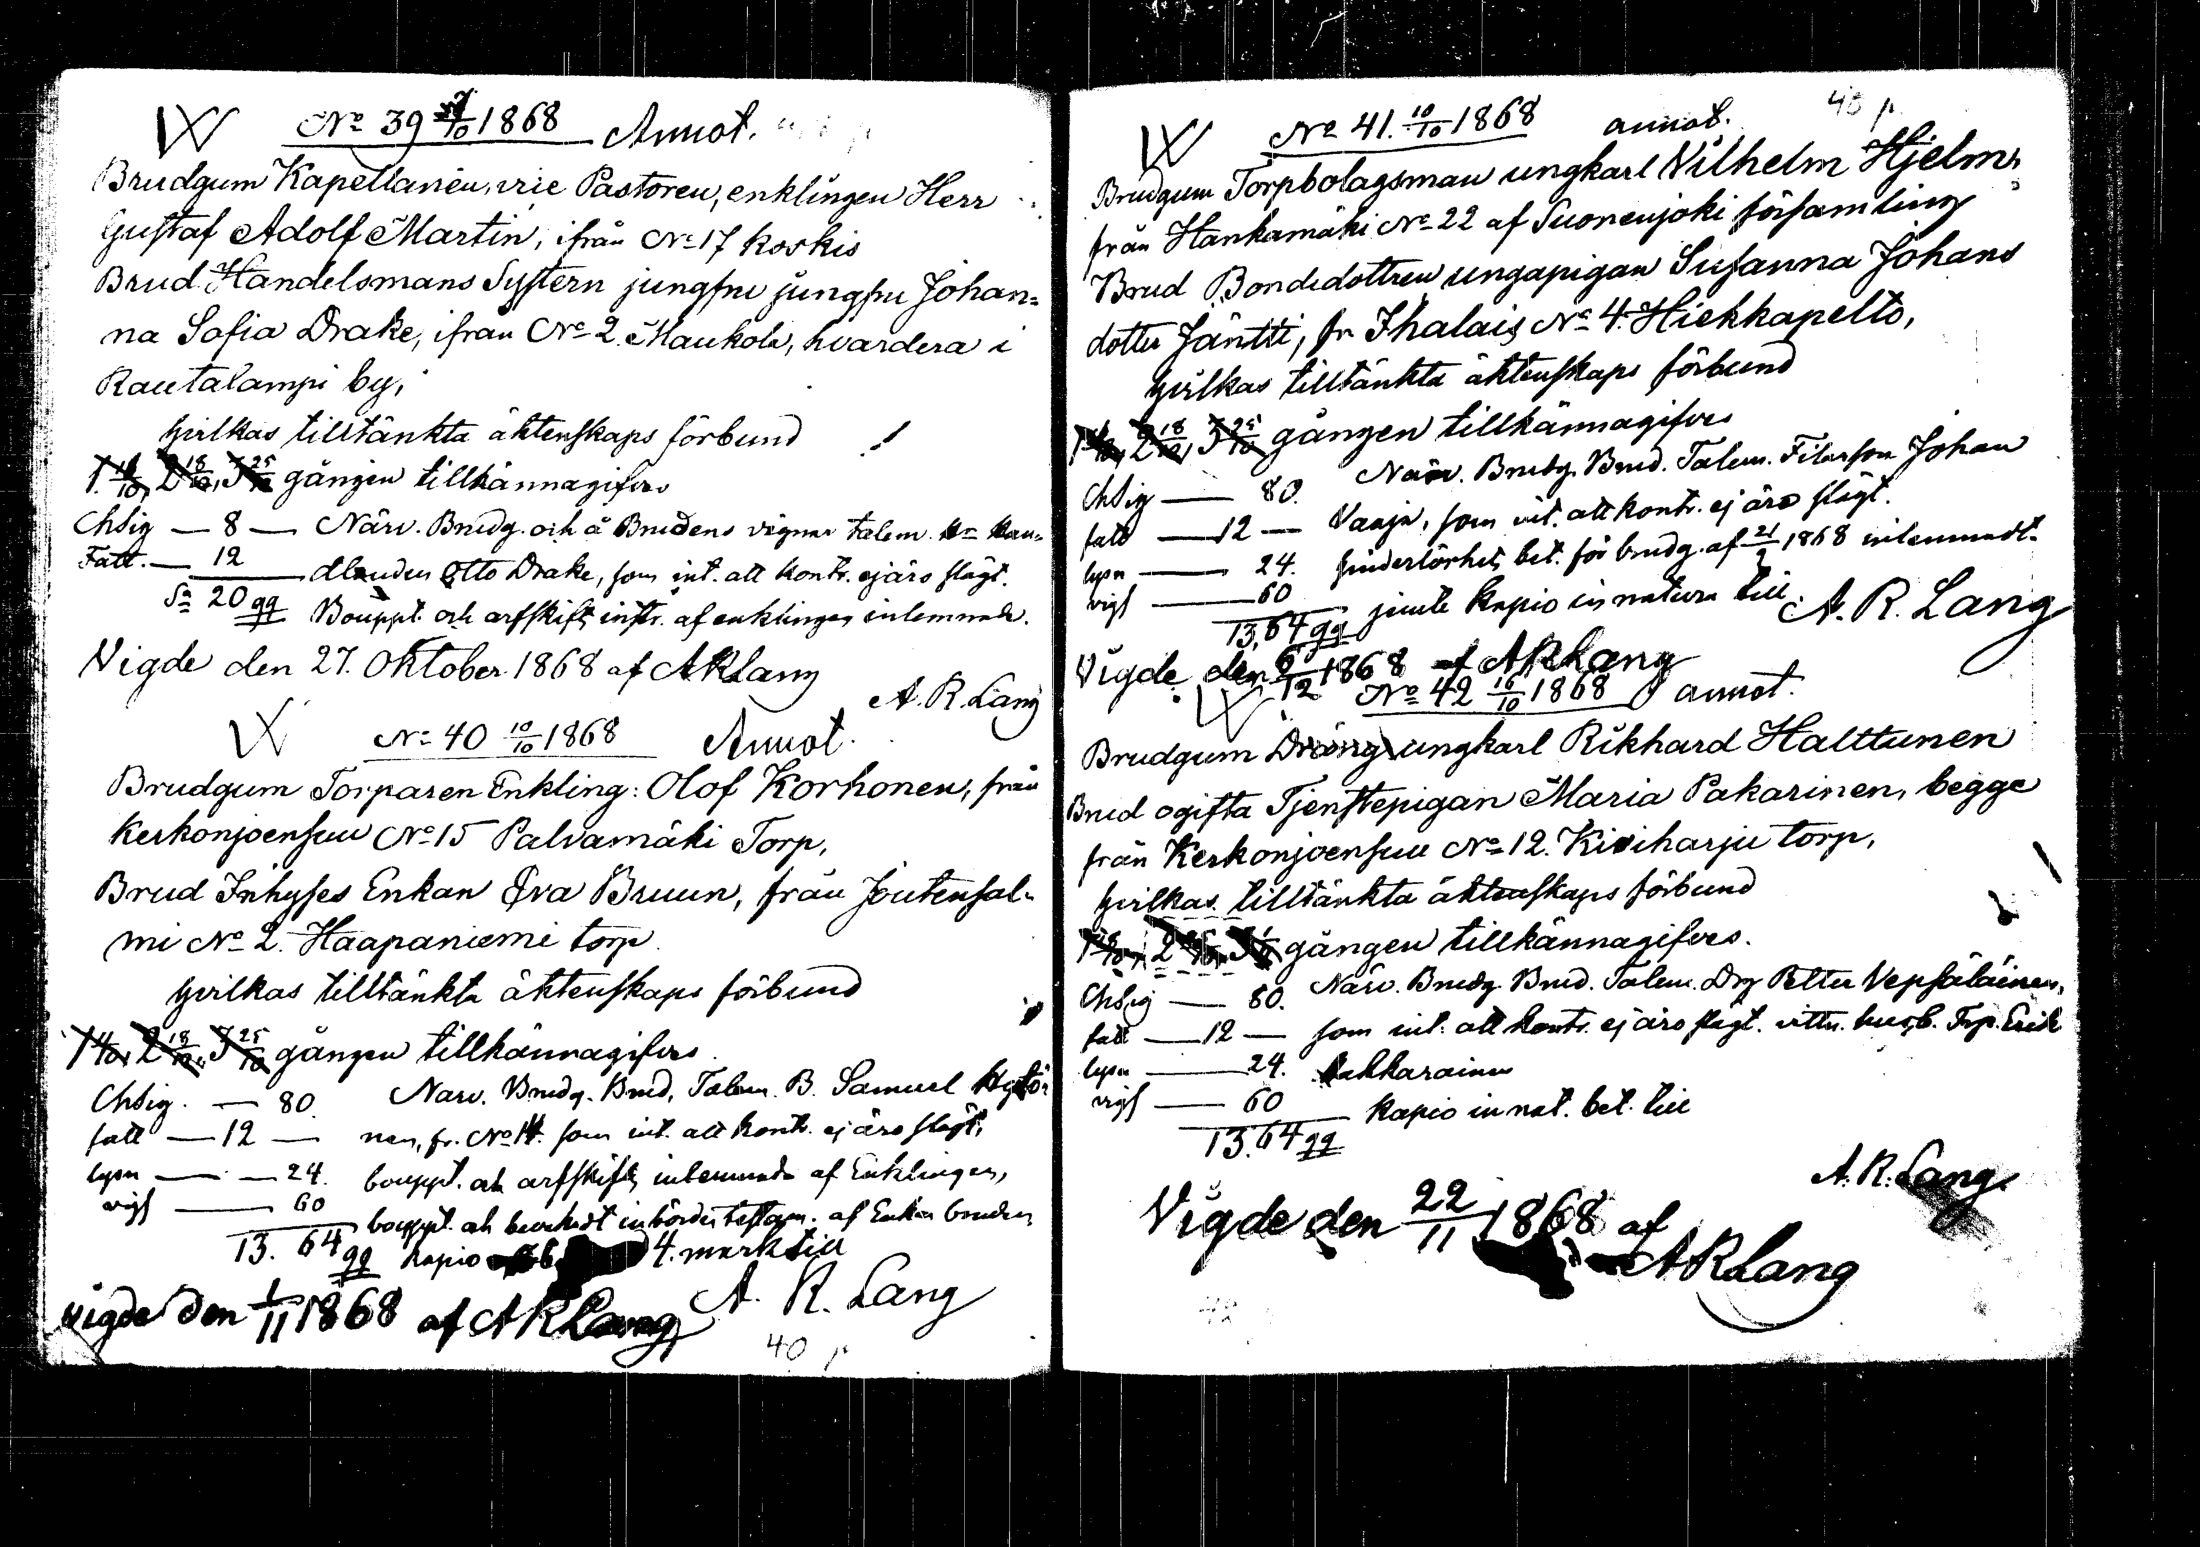 No 39 /10 1868 Annot.
Brudgum Kapellanen, vice Pastoren, enklingen Herr
Gustaf Adolf Martin, ifrån No 17 Koskis
Brud Handelsmans Systern jungfru jungfru Johan=
na Sofia Drake, ifrån No 2. Maukola, hvardera i
Rautalampi by,
hvilkas tilltänkta äktenskaps förbund
1. 11/10, 2 18/10, 3 25/10 gången tillkännagifves
Chsig — 8 — Närv. Brudg. och å Brudens vägnar talem. Hr Han=
Fatt. — 12 dlanden Otto Drake, som int. att kontr. ej äro slägt.
Sa 20 Bouppt. och arfskifts instr. af enklingen inlemnade.
Vigde den 27. Oktober 1868 af ARLang
A. R. Lang
No 40 10/10 1868 Annot.
Brudgum Torparen Enkling: Olof Korhonen, från
Kerkonjoensuu No 15 Palvamäki Torp,
Brud Inhyses Enkan Eva Bruun, från Joutensal=
mi No 2. Haapaniemi torp
hvilkas tilltänkta äktenskaps förbund
1 11/10, 2 18/10, 3 25/10 gången tillkännagifves
Chsig. — 80. Närv. Brudg. Brud, Talem. B. Samuel Hytö=
fatt — 12 — nen, fr. No 14. som int. att kontr. ej äro slägt,
lysn — — 24. bouppt. och arfskifts inlemnade af Enklingen,
vigs — 60 bouppt. och inbördes testam. af Enkan bruden
13. 64 kapio 4. mark till
A. R. Lang
vigde den 1/11 1868 af ARLang
40 p
43 p
No 41. 10/10 1868 annot.
Brudgum Torpbolagsman ungkarl Vilhelm Hjelm,
från Hankamäki No 22 af Suonenjoki församling
Brud Bondedottren ungapigan Susanna Johans
dotter Jäntti, fr. Ihalais No 4. Hiekkapelto,
hvilkas tilltänkta äktenskaps förbund
1 11/10, 2 18/10, 3 25/10 gången tillkännagifves
Chsig — 80. Närv. Brudg. Brud. Talem. Filarson Johan
fatt — 12 — Vaaja, som int. att kontr. ej äro slägt.
lysn — 24. hinderlöshets bet. för brudg. af 21/9 1868 inlemnadt.
vigs — 60 jemte kapio in natura till.
13.64 A. R. Lang
Vigde den 6/12 1868 af ARLang
No 42 10/10 1868 annot.
Brudgum Dräng ungkarl Rikhard Halttunen
Brud ogifta Tjenstepigan Maria Pakarinen, begge
från Kerkonjoensuu No 12. Kiviharju torp,
hvilkas tilltänkta äktenskaps förbund
1 18/10, 2 25/10, 3 1/11 gången tillkännagifves.
Chsig — 80. Närv. Brudg. Brud. Talem. Drg Petter Vepsäläinen,
fatt — 12 — som int. att kontr. ej äro slägt. vittn. husb. Trp. Erik
lysn — 24. Pakkarainen
vigs — 60 kapio in nat. bet. till
13.64
A. R. Lang.
Vigde den 22/11 1868 af
ARLang